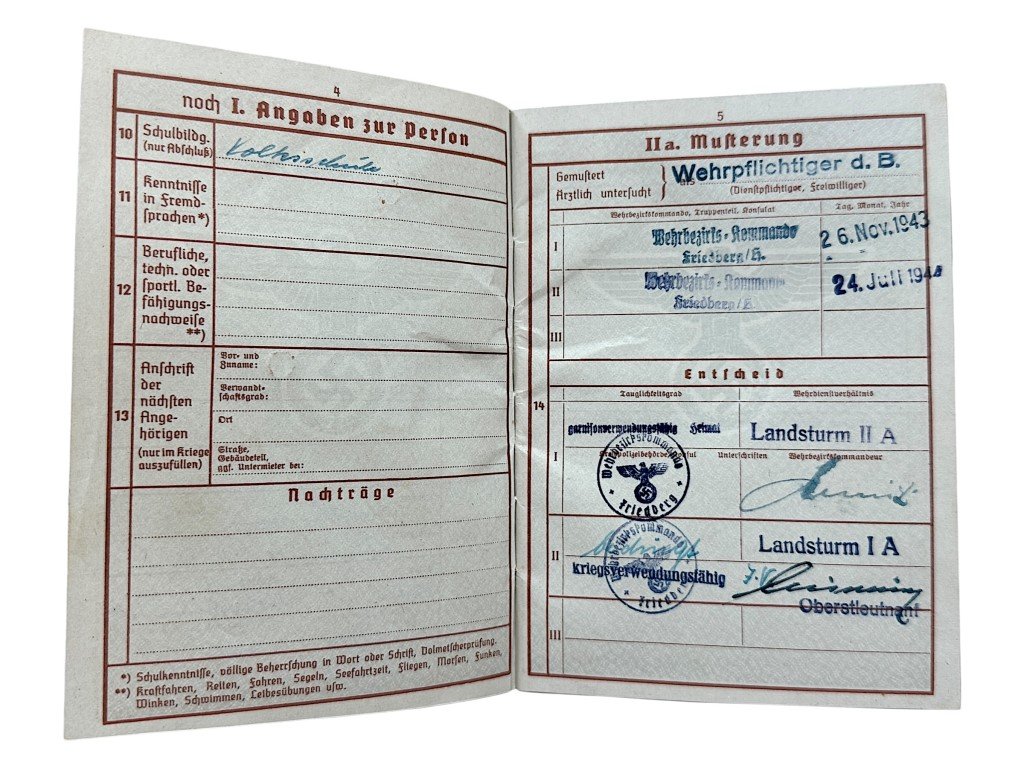 4
noch I. Angaben zur Person
10
Schulbildg.
(nur Abschluß)
Volksschule
11
Kenntnisse
in Fremd-
sprachen*)
12
Berufliche,
techn. oder
sportl. Be-
fähigungs-
nachweise
**)
13
Anschrift
der
nächsten
Ange-
hörigen
(nur im Kriege
auszufüllen)
Vor- und
Zuname:
Verwandt-
schaftsgrad:
Ort
Straße,
Gebäudeteil,
ggf. Untermieter bei:
Nachträge
*) Schulkenntnisse, völlige Beherrschung in Wort oder Schrift, Dolmetscherprüfung.
**) Kraftfahren, Reiten, Fahren, Segeln, Seefahrtzeit, Fliegen, Morsen, Funken,
Winken, Schwimmen, Leibesübungen usw.
5
IIa. Musterung
Gemustert
Ärztlich untersucht
als Wehrpflichtiger d. B.
(Dienstpflichtiger, Freiwilliger)
Wehrbezirkskommando, Truppenteil, Konsulat
Tag, Monat, Jahr
I
Wehrbezirks-Kommando
Friedberg/H.
26. Nov. 1943
II
Wehrbezirks-Kommando
Friedberg/H.
24. Juli 1944
III
Entscheid
14
Tauglichkeitsgrad
Wehrdienstverhältnis
garnisonverwendungsfähig Heimat
Landsturm II A
I
Unterschriften
Wehrbezirkskommandeur
Wehrbezirkskommando
Friedberg
II
Landsturm I A
Wehrbezirkskommando
Friedberg
kriegsverwendungsfähig
Oberstleutnant
III